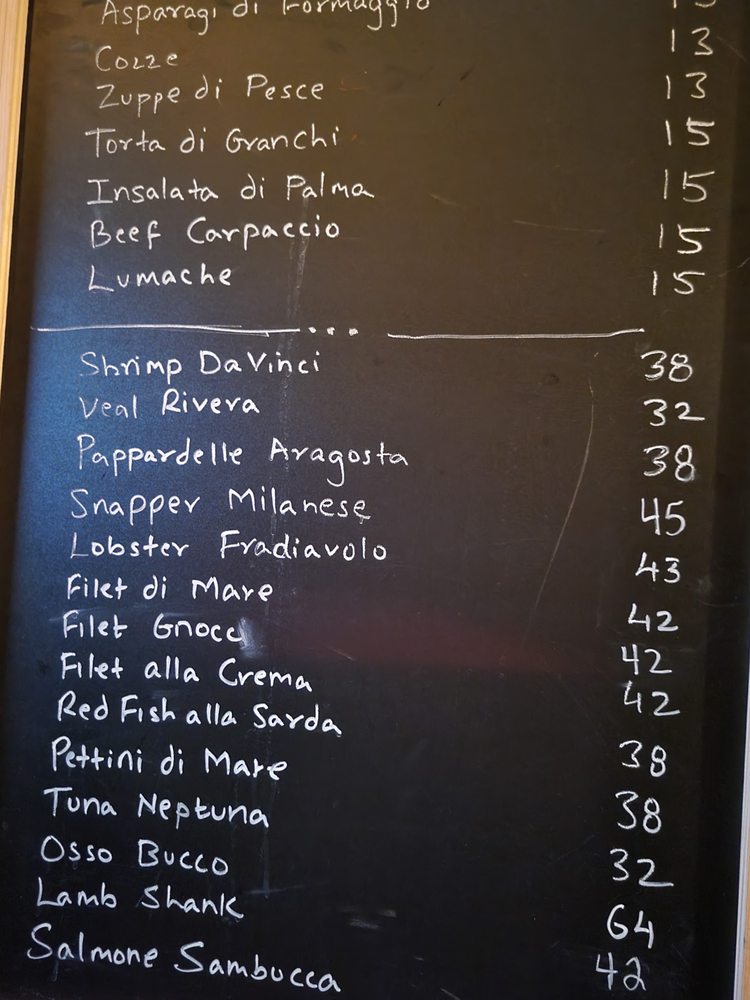 Asparagi di Formaggio
Cozze 13
Zuppe di Pesce 13
Torta di Granchi 15
Insalata di Palma 15
Beef Carpaccio 15
Lumache 15
Shrimp DaVinci 38
Veal Rivera 32
Pappardelle Aragosta 38
Snapper Milanese 45
Lobster Fradiavolo 43
Filet di Mare 42
Filet Gnocc 42
Filet alla Crema 42
Red Fish alla Sarda 38
Pettini di Mare 38
Tuna Neptuna 32
Osso Bucco 64
Lamb Shank 42
Salmone Sambucca